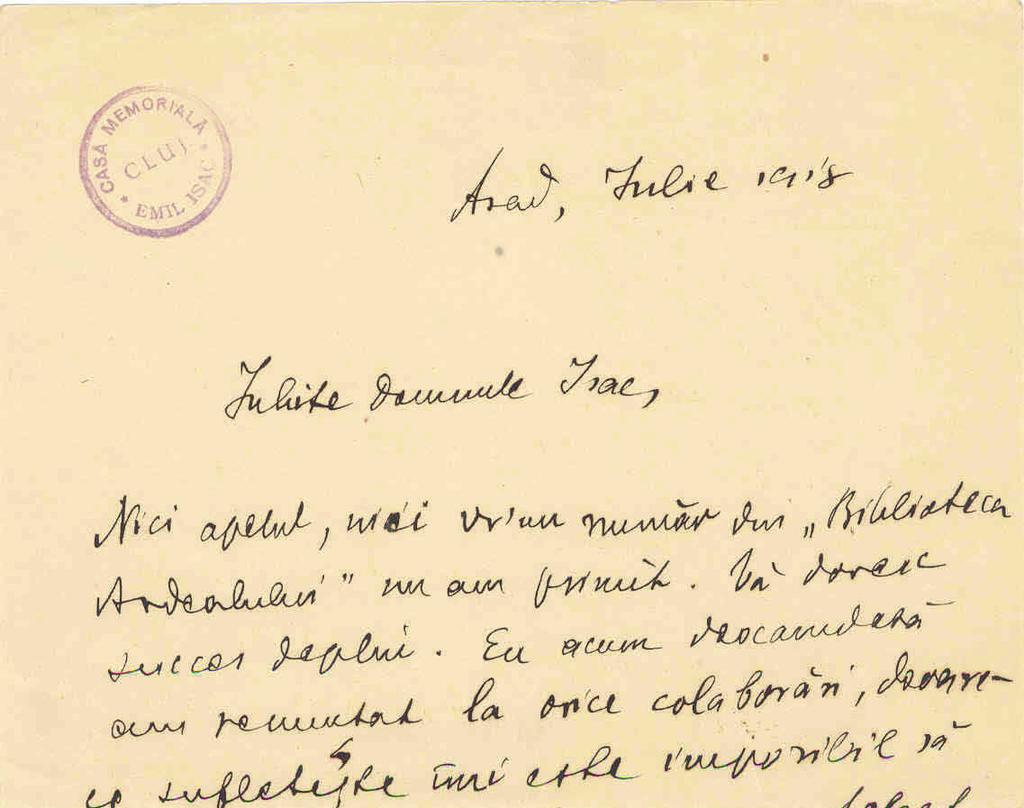 CASA MEMORIALĂ
CLUJ
* EMIL ISAC *
Arad, Iulie 1918
Iubite Domnule Isac,
Nici apelul, nici vr'un număr din „Biblioteca
Ardealului” nu am primit. Vă doresc
succes deplin. Eu acum deocamdată
am renunțat la orice colaborări, deoare-
ce sufletește îmi este imposibil să